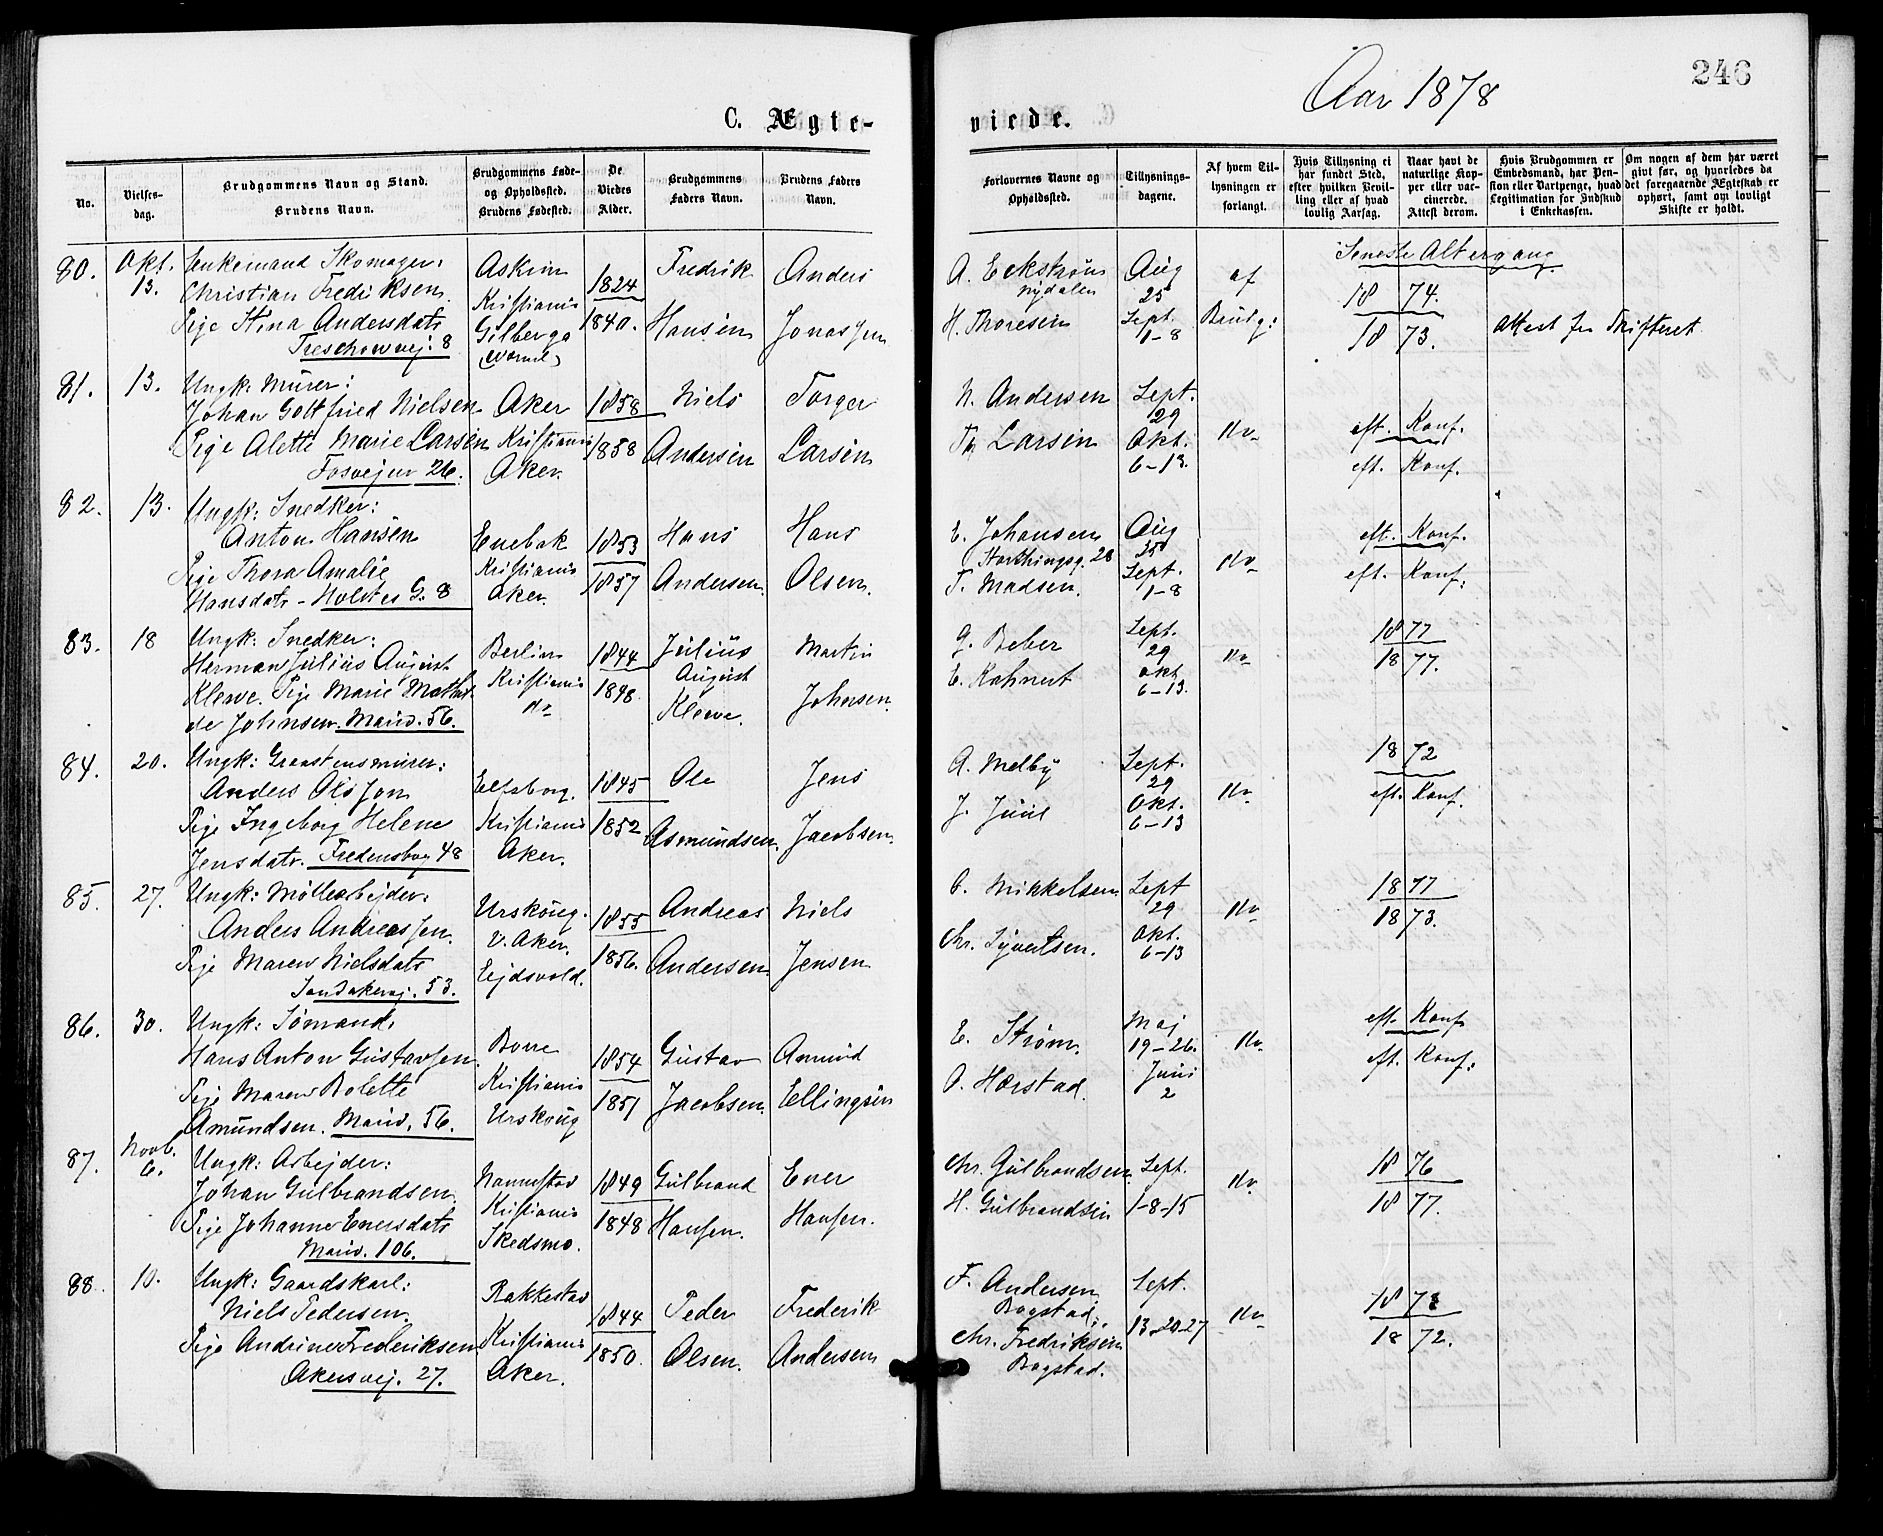 246
Aar 1878
C. Ægte-
viede.
No.
Vielses-
dag.
Brudgommens Navn og Stand.
Brudens Navn.
Brudgommens Føde-
og Opholdssted.
Brudens Fødested.
De
Viedes
Alder.
Brudgommens
Faders Navn.
Brudens Faders
Navn.
Forlovernes Navne og
Opholdssted.
Tillysnings-
dagene.
Af hvem Til-
lysningen er
forlangt.
Hvis Tillysning ei
har fundet Sted,
efter hvilken Bevil-
ling eller af hvad
lovlig Aarsag.
Naar havt de
naturlige Kop-
per eller vac-
cinerede.
Attest derom.
Hvis Brudgommen er
Embedsmand, har Pen-
sion eller Vartpenge, hvad
Legitimation for Indskud
i Enkekassen.
Om nogen af dem har været
givt før, og hvorledes da
det foregaaende Ægteskab er
ophørt, samt om lovligt
Skifte er holdt.
Seneste Altergang
80. Okt. 13. Enkemand Skomager:
Christian Fredriksen
Pige Stina Andersdatr
Treschowvej: 8
Askim
Kristiania
Gilberga
1824
1840.
Fredrik
Hansen
Anders
Jonassen
A. Eckstrøm
Nydalen
H. Thoresen
Aug
25
Sept.
1-8
af
Brudg:
18 74.
18 73.
Attest fra Skifteret
81. 13. Ungk: Murer:
Johan Gottfried Nielsen
Pige Alette Marie Larsen
Fosvejen 26.
Aker
Kristiania
Aker.
1858
1858
Niels
Andersen
Torger
Larsen
N. Andersen
Th Larsen
Sept.
29
Okt.
6-13.
do
eft. Konf.
eft. Konf.
82. 13. Ungk: Snedker:
Anton Hansen
Pige Thora Amalie
Hansdatr - Holstes G. 8
Enebak
Kristiania
Aker.
1853
1857
Hans
Andersen
Hans
Olsen.
E. Johansen
Storthingsg. 28
T. Madsen.
Aug
25
Sept.
1-8
do
eft. Konf.
eft. Konf.
83. 18 Ungk: Snedker:
Herman Julius August
Klewe. Pige Marie Mathil
de Johnsen. Marid. 56.
Berlin
Kristiania
do
1844
1848.
Julius
August
Klewe.
Martin
Johnsen.
G. Beber
E. Kahnert
Sept.
29
Okt
6-13.
do
18 77
18 77.
84. 20. Ungk: Graastensmurer:
Anders Olsson
Pige Ingeborg Helene
Jensdatr. Fredensborg 48
Elfsborg.
Kristiania
Aker.
1845
1852
Ole
Asmundsen.
Jens
Jacobsen.
A. Melby
J. Juul
Sept.
29
Okt.
6-13
do
18 72
eft. Konf.
85. 27. Ungk: Møllearbejder:
Anders Andreassen.
Pige Maren Nielsdatr
Sandakervej. 53.
Urskoug.
V. Aker.
Eidsvold.
1855
1856.
Andreas
Andersen
Niels
Jensen
O. Mikkelsen
Chr. Syvertsen.
Sept
29
Okt.
6-13
do
18 77
18 73.
86. 30. Ungk: Sømand:
Hans Anton Gustavsen.
Pige Maren Bolette
Amundsen. Marid. 56.
Borre
Kristiania
Urskoug
1854
1851
Gustav
Jacobsen.
Amund
Ellingsen
E. Strøm.
O. Hærstad.
Maj
19-26.
Juni
2
do
eft. Konf
eft. Konf.
87. Novb. 6. Ungk: Arbejder:
Johan Gulbrandsen.
Pige Johanne Enersdatr
Marid. 106.
Nannestad
Kristiania
Skedsmo.
1849
1848
Gulbrand
Hansen.
Ener
Hansen.
Chr. Gulbrandsen
H. Gulbrandsen
Sept.
1-8-15
do
18 76
18 77.
88. 10. Ungk: Gaardskarl:
Niels Pedersen.
Pige Andrine Frederiksen
Akersvej. 27.
Rakkestad
Kristiania
Aker.
1844
1850.
Peder
Olsen.
Frederik
Andersen
F. Andersen.
Bogstad.
Chr. Fredriksen
Bogstad.
Sept.
13-20-27
do
18 72.